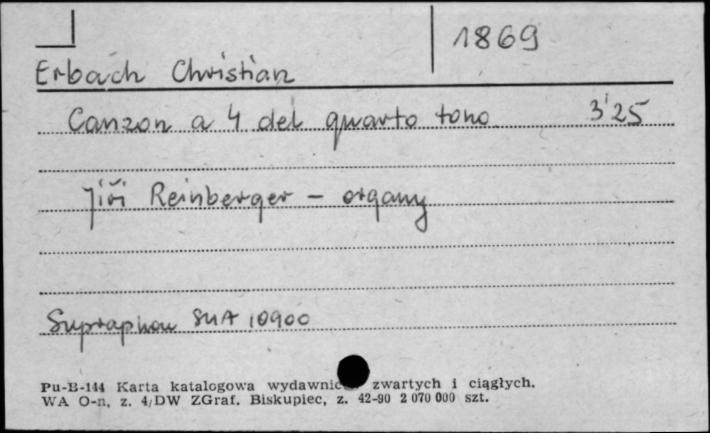 1869
Erbach Christian
Canzon a 4 del quarto tono 3'25
Jiří Reinberger - organy
Supraphon SUA 10900
Pu-B-144 Karta katalogowa zwartych i ciągłych.
WA O-n, z. 4/DW ZGraf. Biskupiec, z. 42-90 2 070 000 szt.